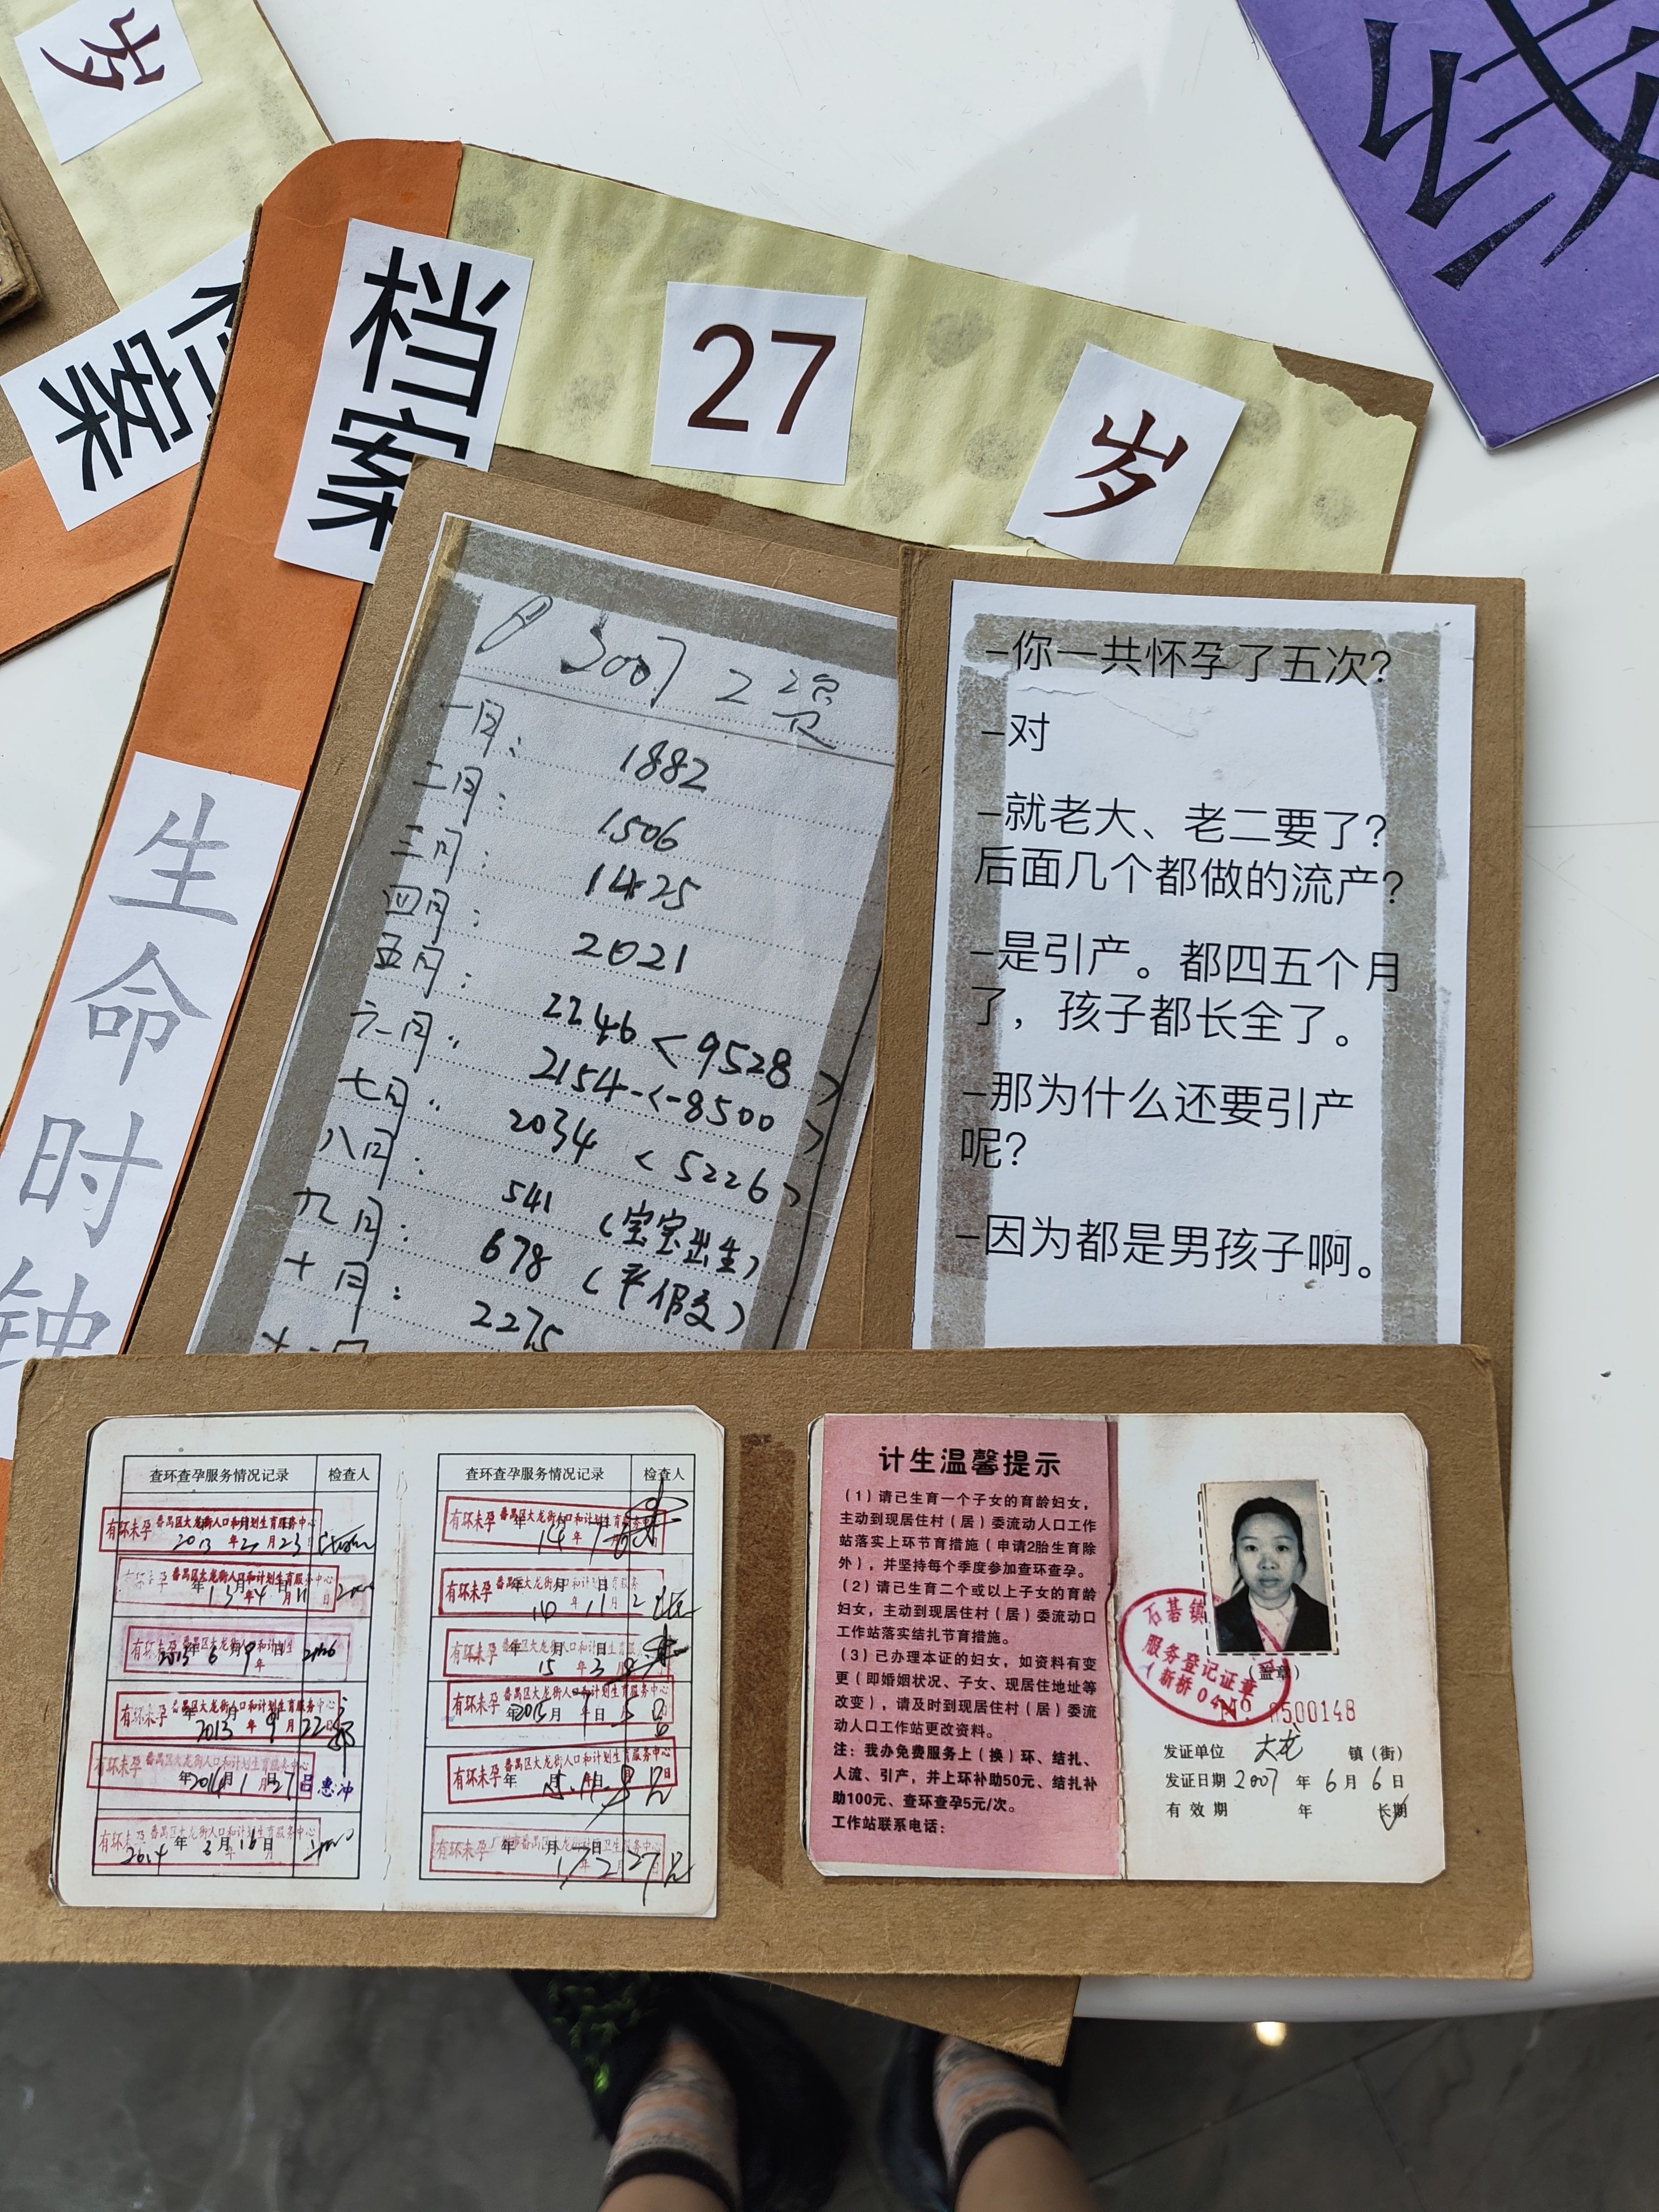 岁
档案
线
档案
27
岁
生命时钟
2007工资
一月： 1882
二月： 1506
三月： 1425
四月： 2021
五月： 2246 < 9528 >
六月： 2154 -<-8500 >
七月： 2034 < 5226 >
八月： 541 (宝宝出生)
九月： 678 (产假)
十月： 2275
–你一共怀孕了五次？
–对
–就老大、老二要了？
后面几个都做的流产？
–是引产。都四五个月
了，孩子都长全了。
–那为什么还要引产
呢？
–因为都是男孩子啊。
查环查孕服务情况记录 检查人
有环未孕 番禺区大龙街人口和计划生育服务中心
2013年2月23日
有环未孕 番禺区大龙街人口和计划生育服务中心
13年4月11日
有环未孕 番禺区大龙街人口和计划生
2013 6 9
有环未孕 番禺区大龙街人口和计划生育服务中心
2013年9月22日
有环未孕 番禺区大龙街人口和计划生育服务中心
2014年1月27日 吕惠冲
有环未孕 番禺区大龙街人口和计划生育服务中心
2014年3月16日
查环查孕服务情况记录 检查人
有环未孕 番禺区大龙街人口和计划生育服务
14年7月
有环未孕 番禺区大龙街人口和计划生育服务
有环未孕 番禺区大龙街人口和计划生育服务
15年3月
有环未孕 番禺区大龙街人口和计划生育服务中心
2015年
有环未孕 番禺区大龙街人口和计划生育服务中心
有环未孕 番禺区大龙街
17 2 27
计生温馨提示
（1）请已生育一个子女的育龄妇女，
主动到现居住村（居）委流动人口工作
站落实上环节育措施（申请2胎生育除
外），并坚持每个季度参加查环查孕。
（2）请已生育二个或以上子女的育龄
妇女，主动到现居住村（居）委流动口
工作站落实结扎节育措施。
（3）已办理本证的妇女，如资料有变
更（即婚姻状况、子女、现居住地址等
改变），请及时到现居住村（居）委流
动人口工作站更改资料。
注：我办免费服务上（换）环、结扎、
人流、引产，并上环补助50元、结扎补
助100元、查环查孕5元/次。
工作站联系电话：
石碁镇
服务登记证章
（新桥04）
（盖章）
500148
发证单位 大龙 镇（街）
发证日期 2007 年 6 月 6 日
有效期 年 长期